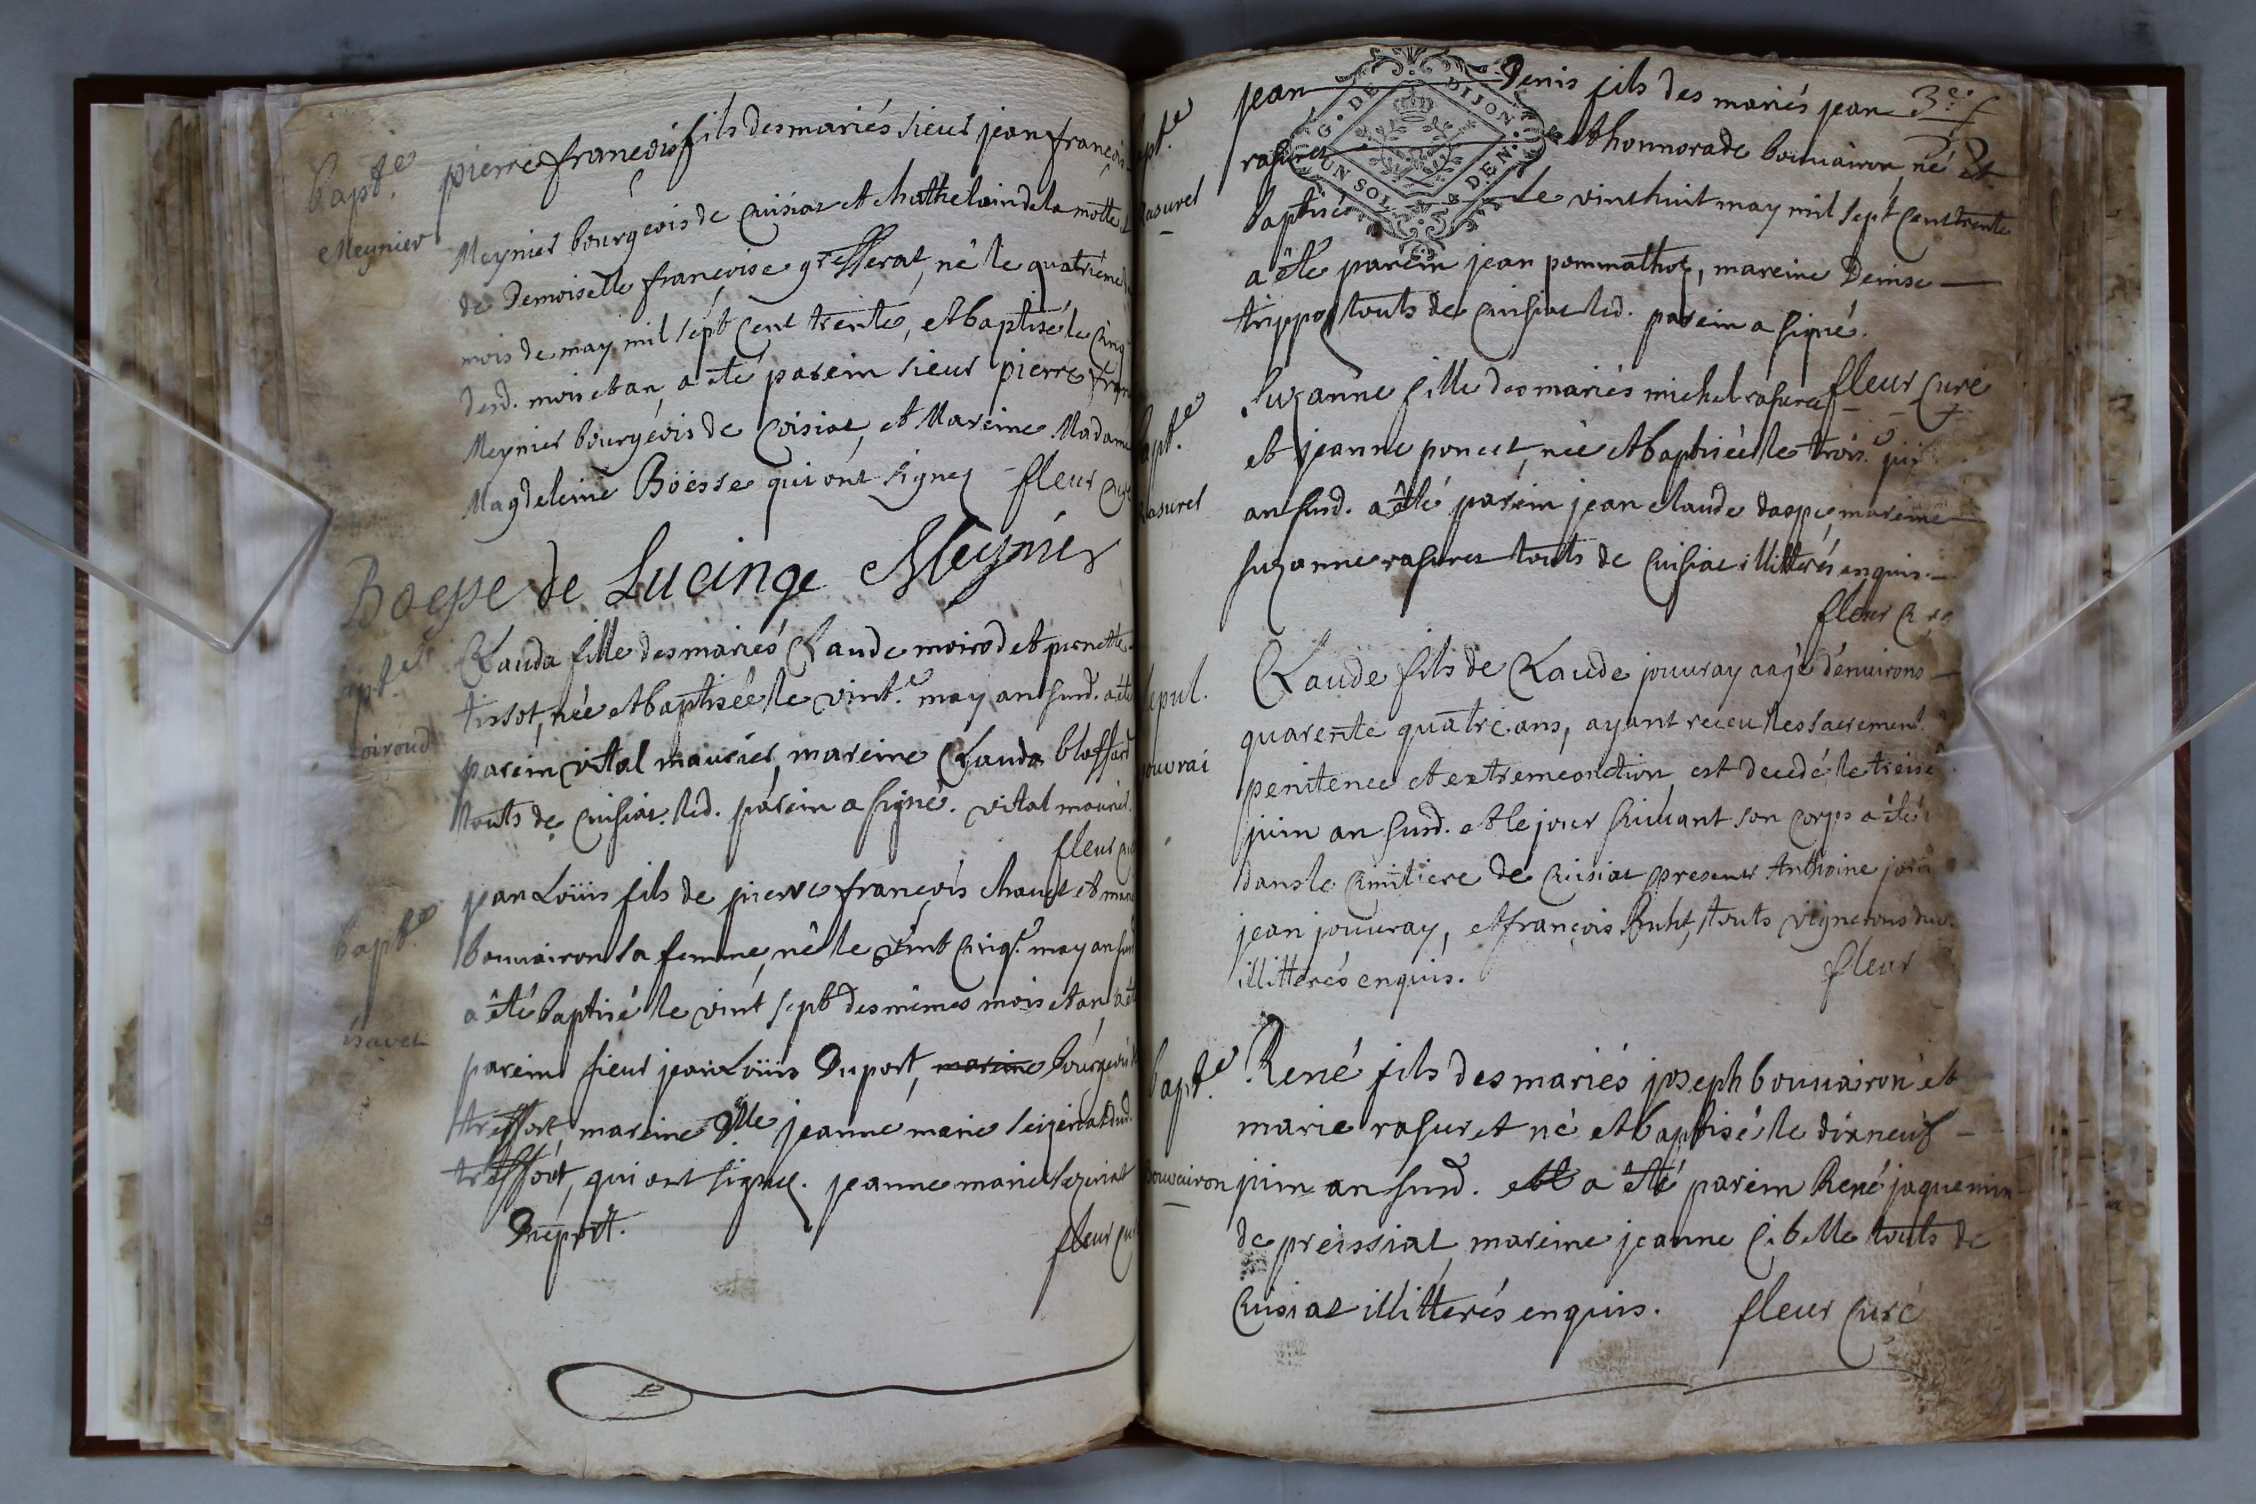 bapt.e
Meynier
pierre françois fils des mariés sieur jean françois
Meynier bourgeois de Cuisiat et chathelain de la motte
de Demoiselle françoise grefferat, né le quatriéme
mois de may mil sept cent trente, et baptisé le cinq
desd. mois et an, a été parein sieur pierre
Meynier bourgeois de Coisiat, et Mareine Madame
Magdeleine Böesse qui ont signez fleur
Boesse de Lucinge Meynier
Clauda fille des mariés Claude moirod et pernette
tissot, née et baptisée le vint.e may an susd. a été
parein vital maurier, mareine Clauda
touts de cuisiat. led. parein a signé. vital maurier.
fleur
bapt.e
jean Loüis fils de pierre françois chanel et
bouvairon sa femme, né le vint cinq.e may an
a été baptisé le vint sept des mêmes mois et an, a été
parein sieur jean Loüis Duport, mareine bourgeois
treffort, mareine Dlle jeanne marie
treffort, qui ont signez. jeanne marie
Duport.
fleur
jean Denis fils des mariés jean
rasurel et honnorade bouvairon né et
baptisé le vint huit may mil sept cent trente
G. DE DIJON
UN SOL. DEN.
rasurel
a été parein jean pommathot, mareine Denise
trippoz touts de cuisiat led. parein a signé.
fleur curé
Suzanne fille des mariés michel rasurel
et jeanne poncet, née et baptisée le trois.e
an susd. a été parein jean claude daspe, mareine
suzanne rasurel touts de cuisiat illitterés enquis.
fleur
rasurel
Claude fils de Claude jouvray aagé d'environs
quarente quatre ans, ayant receu les sacrement
penitence et extremeonction, est decedé le treise
juin an susd. et le jour suivant son corps a été
dans le cimitiere de cuisiat presents Anthoine
jean jouvray, et françois touts vignerons
illitterés enquis.
fleur
bapt.e
bouvairon
René fils des mariés joseph bouvairon et
marie rasurel né et baptisé le dixneuf
juin an susd. a été parein René jaquemin
de preissiat, mareine jeanne Cibelle touts de
cuisiat illitterés enquis. fleur curé